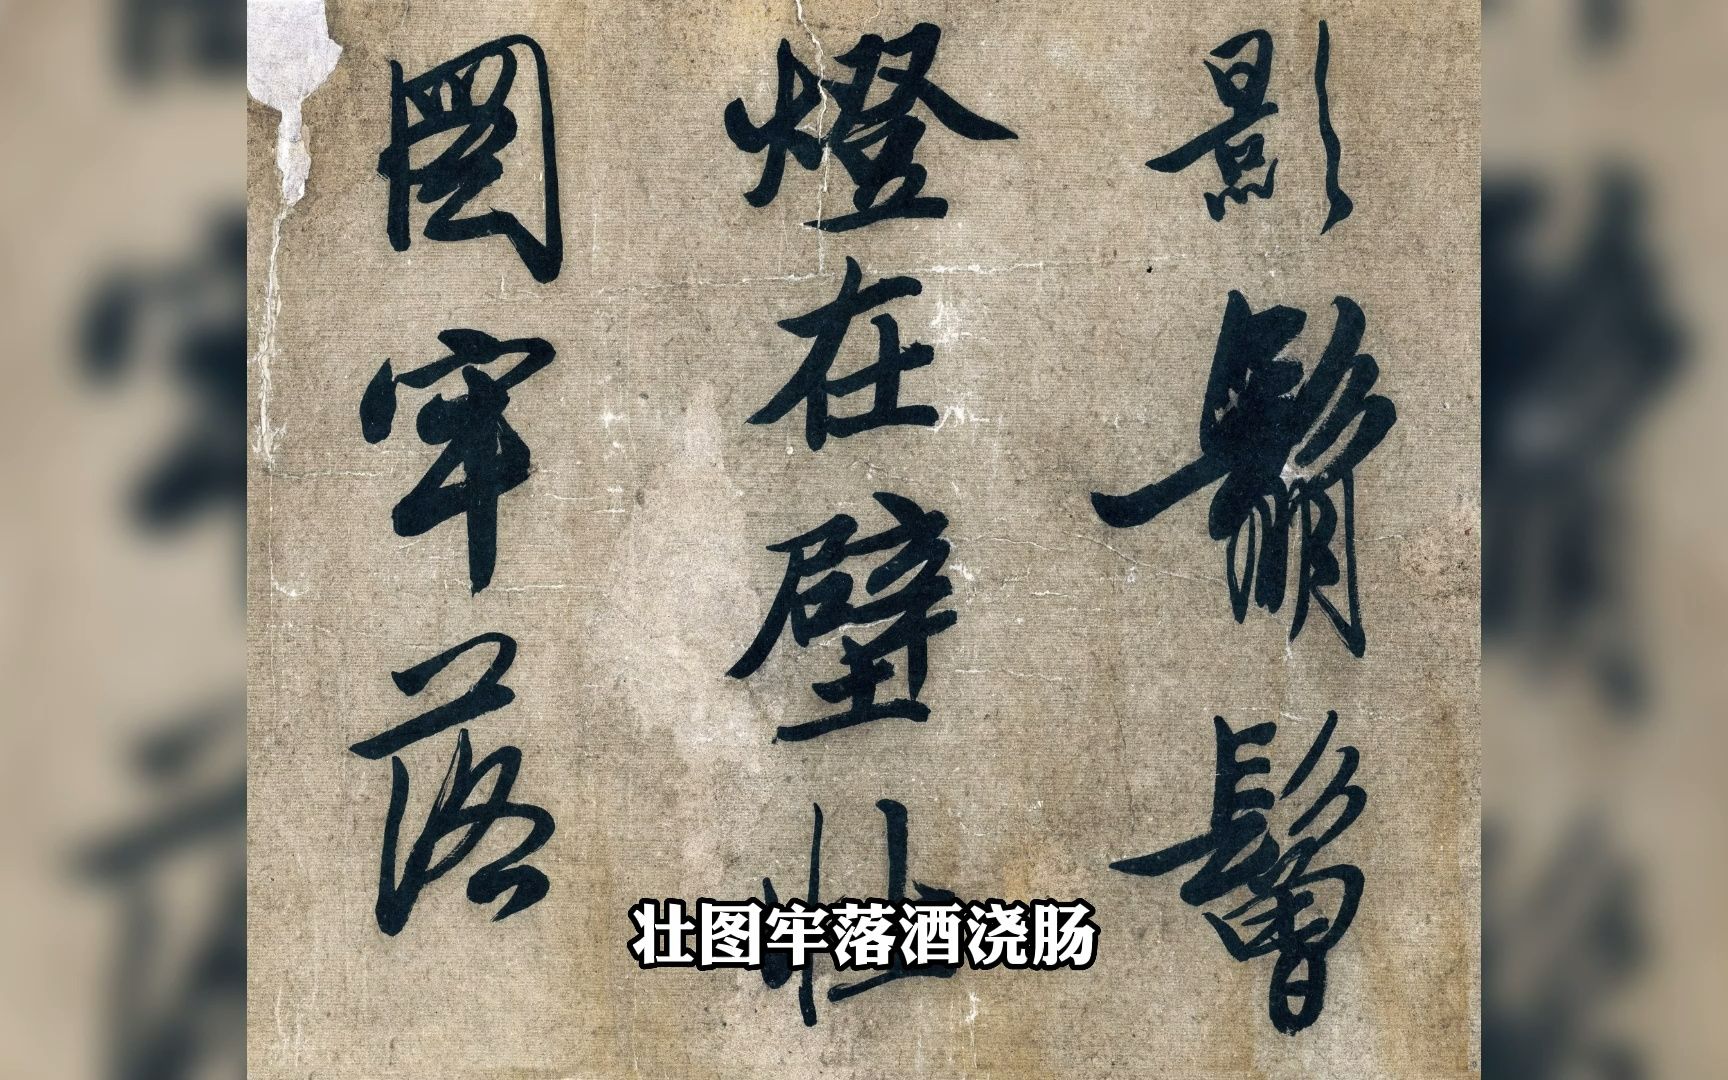 影鬅鬙
燈在壁壮
圖牢落
壮图牢落酒浇肠